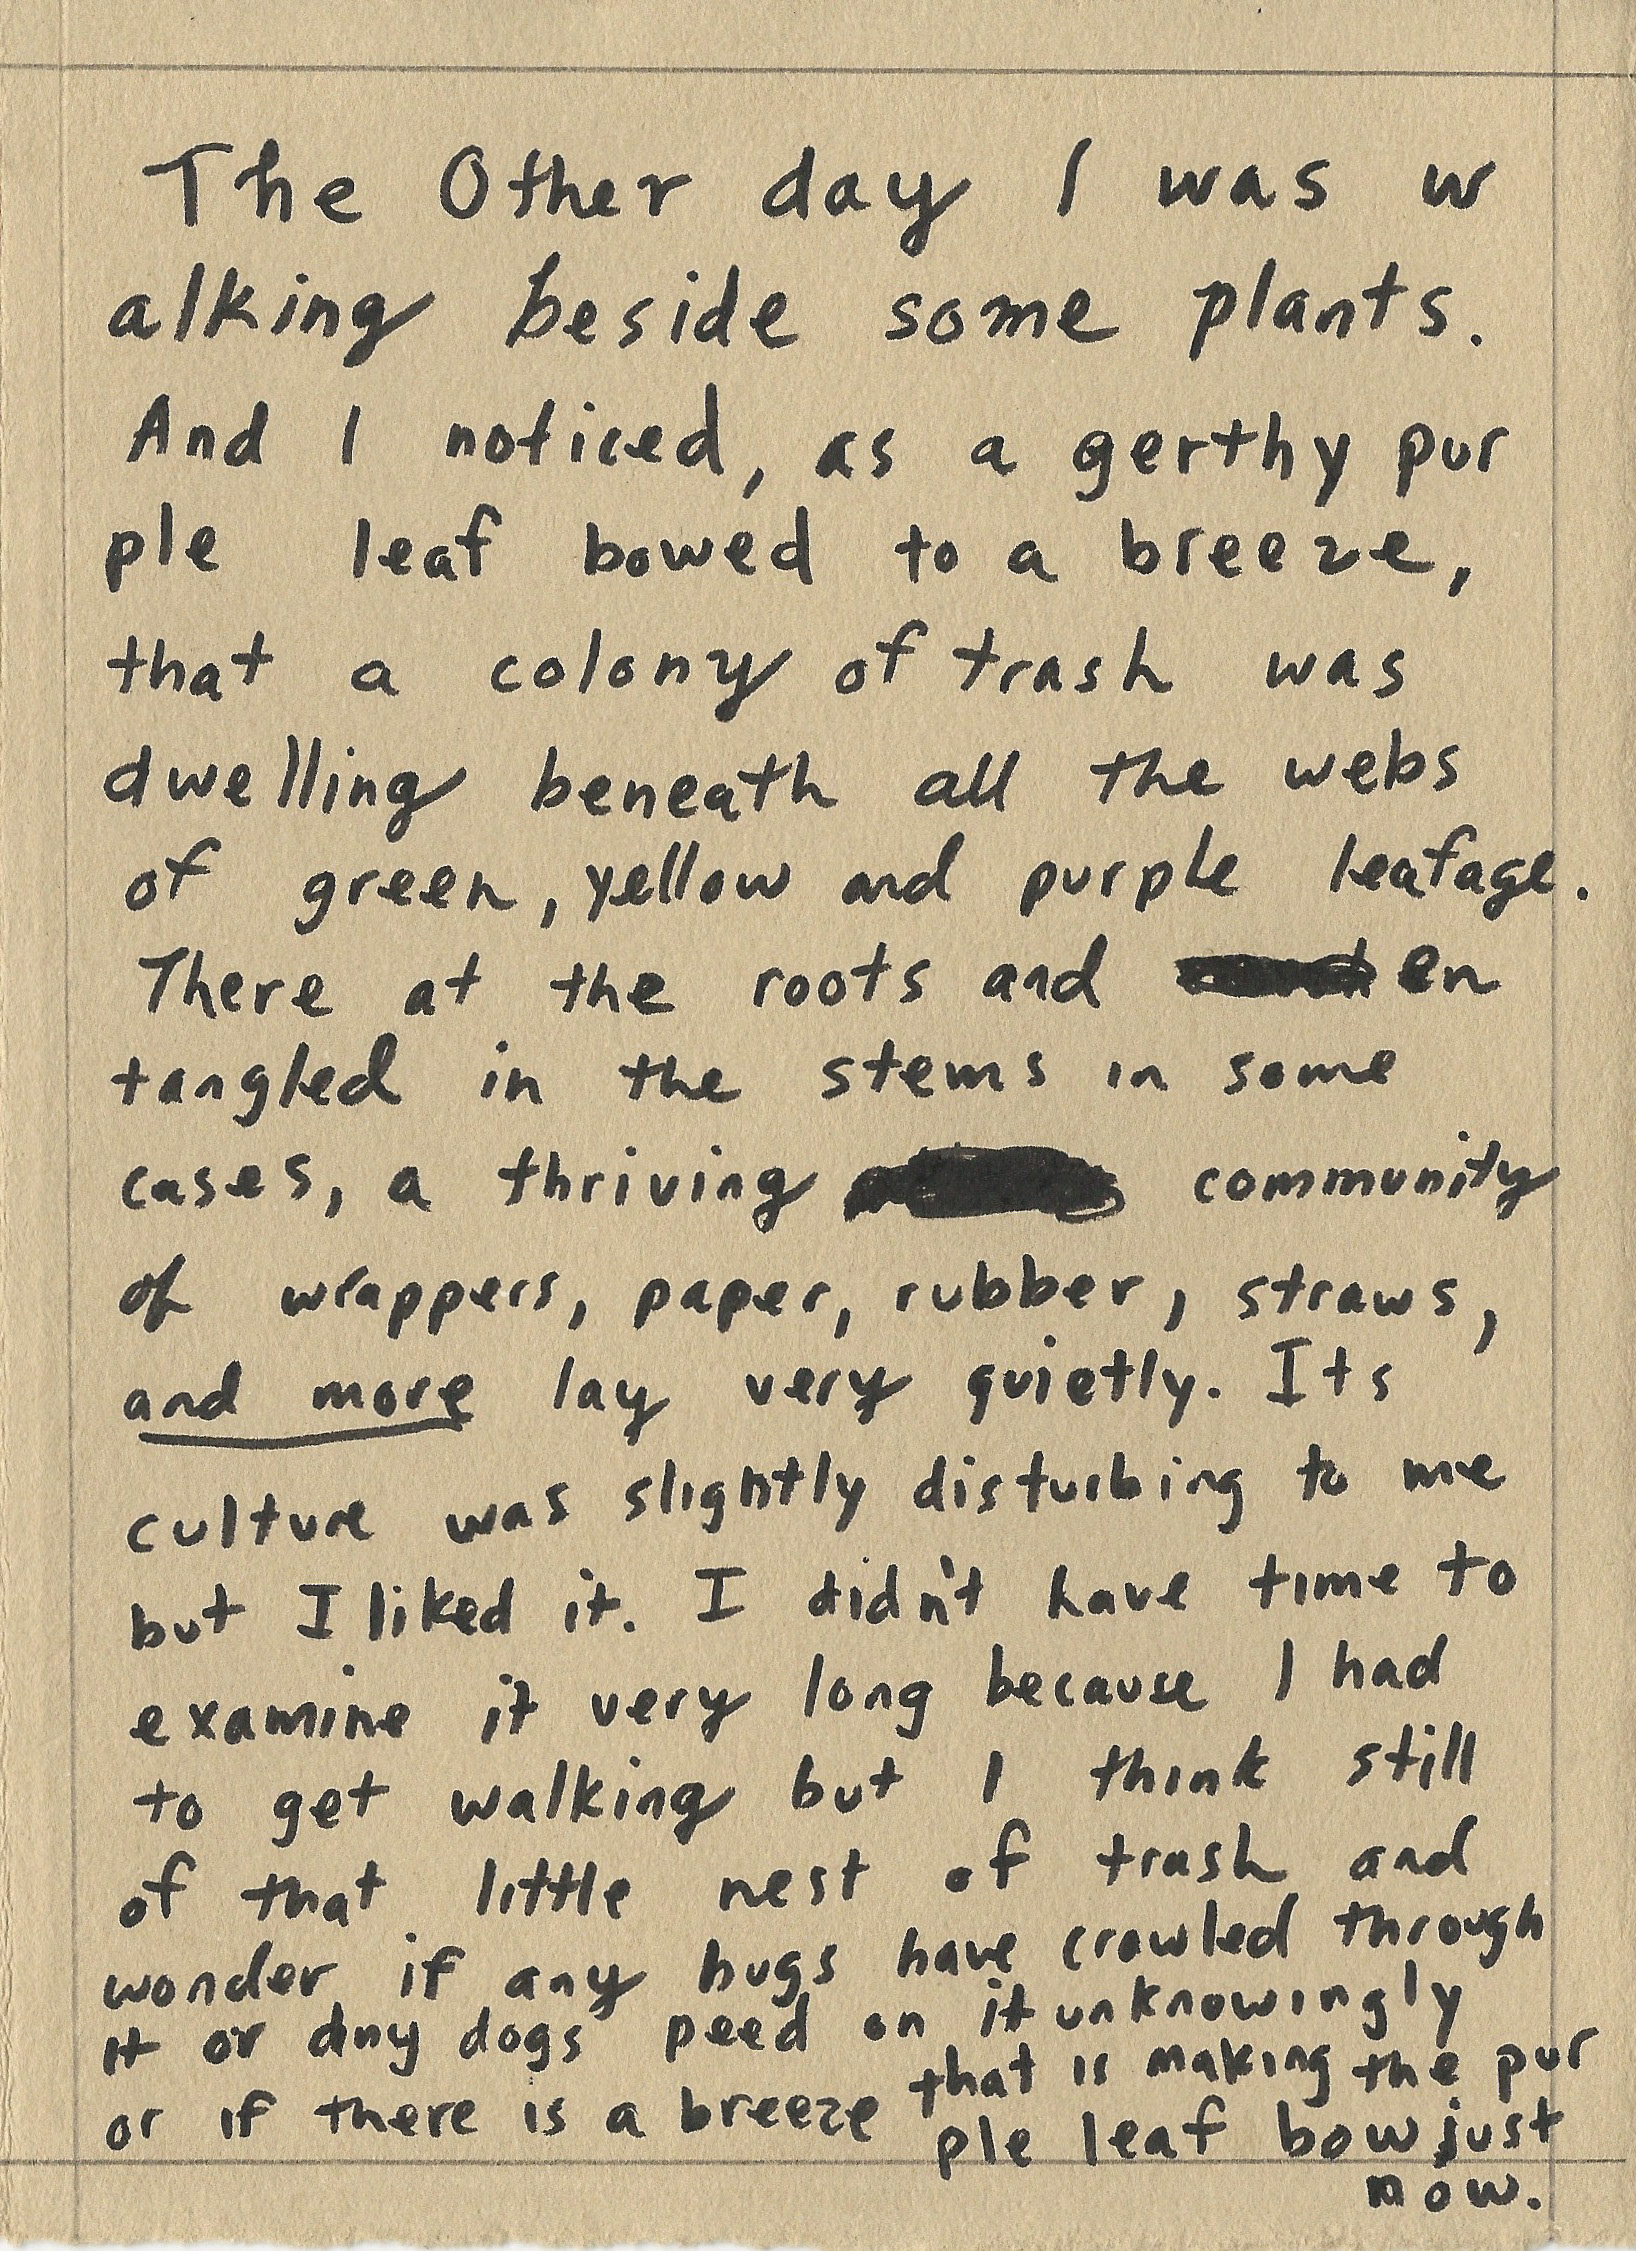 The Other day I was w
alking beside some plants.
And I noticed, as a gerthy pur
ple leaf bowed to a breeze,
that a colony of trash was
dwelling beneath all the webs
of green, yellow and purple leafage.
There at the roots and en
tangled in the stems in some
cases, a thriving community
of wrappers, paper, rubber, straws,
and more lay very quietly. Its
culture was slightly disturbing to me
but I liked it. I didn't have time to
examine it very long because I had
to get walking but I think still
of that little nest of trash and
wonder if any bugs have crawled through
it or any dogs peed on it unknowingly
or if there is a breeze that is making the pur
ple leaf bow just
now.